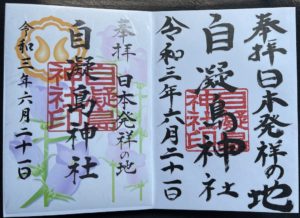 奉拝日本発祥の地
自凝島神社
自凝島
神社印
令和三年六月二十一日
奉拝 日本発祥の地
自凝島神社
自凝島
神社印
令和三年六月二十一日